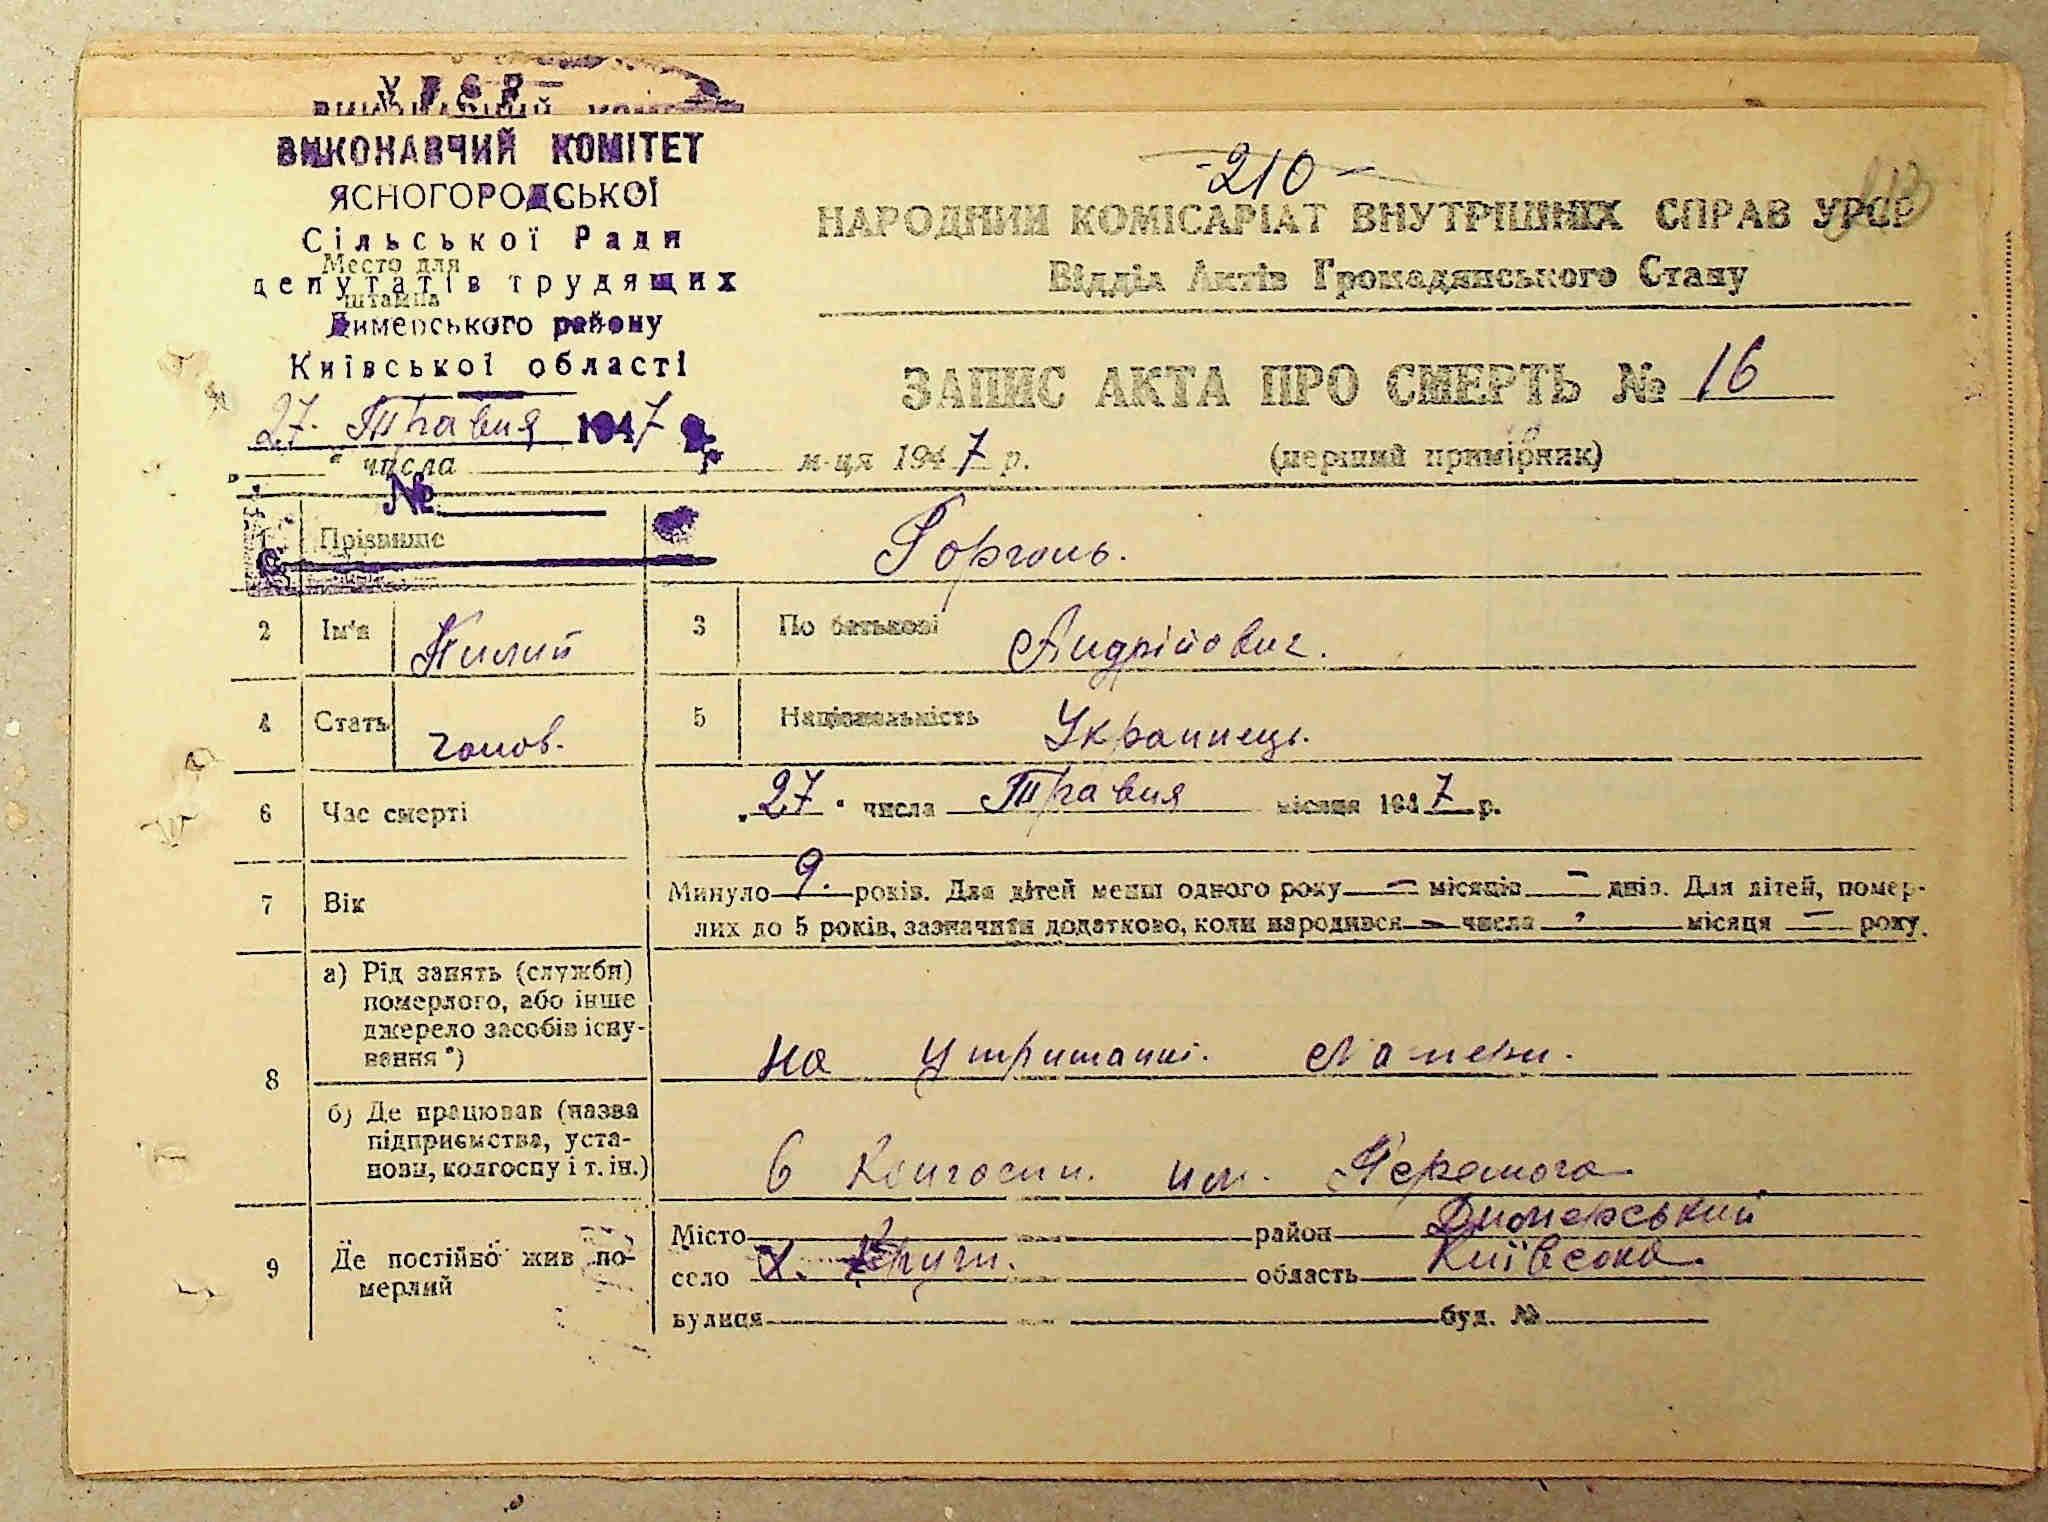 УРСР
ВИКОНАВЧИЙ КОМІТЕТ
ЯСНОГОРОДСЬКОЇ
Сільської Ради
Место для
депутатів трудящих
штампа
Димерського району
Київської області
27. Травня 1947 р.
№
-210-
НАРОДНИЙ КОМІСАРІАТ ВНУТРІШНІХ СПРАВ УРСР
Відділ Актів Громадянського Стану
ЗАПИС АКТА ПРО СМЕРТЬ № 16
„ “ числа м-ця 1947 р. (перший примірник)
1 Прізвище Горголь.
2 Ім'я 3 По батькові Андрійович.
4 Стать чолов. 5 Національність Украинець.
6 Час смерті „27“ числа Травня місяця 1947 р.
7 Вік Минуло 9. років. Для дітей менш одного року — місяців — днів. Для дітей, помер-
лих до 5 років, зазначити додатково, коли народився — числа — місяця — року.
8 а) Рід занять (служби)
померлого, або інше
джерело засобів існу-
вання*) на утриманні.
б) Де працював (назва
підприємства, уста-
нови, колгоспу і т. ін.) в Колгоспи. им. Перемога
9 Де постійно жив по-
мерлий
Місто район Димерський
село х. Круги. область Київсока.
вулиця буд. №